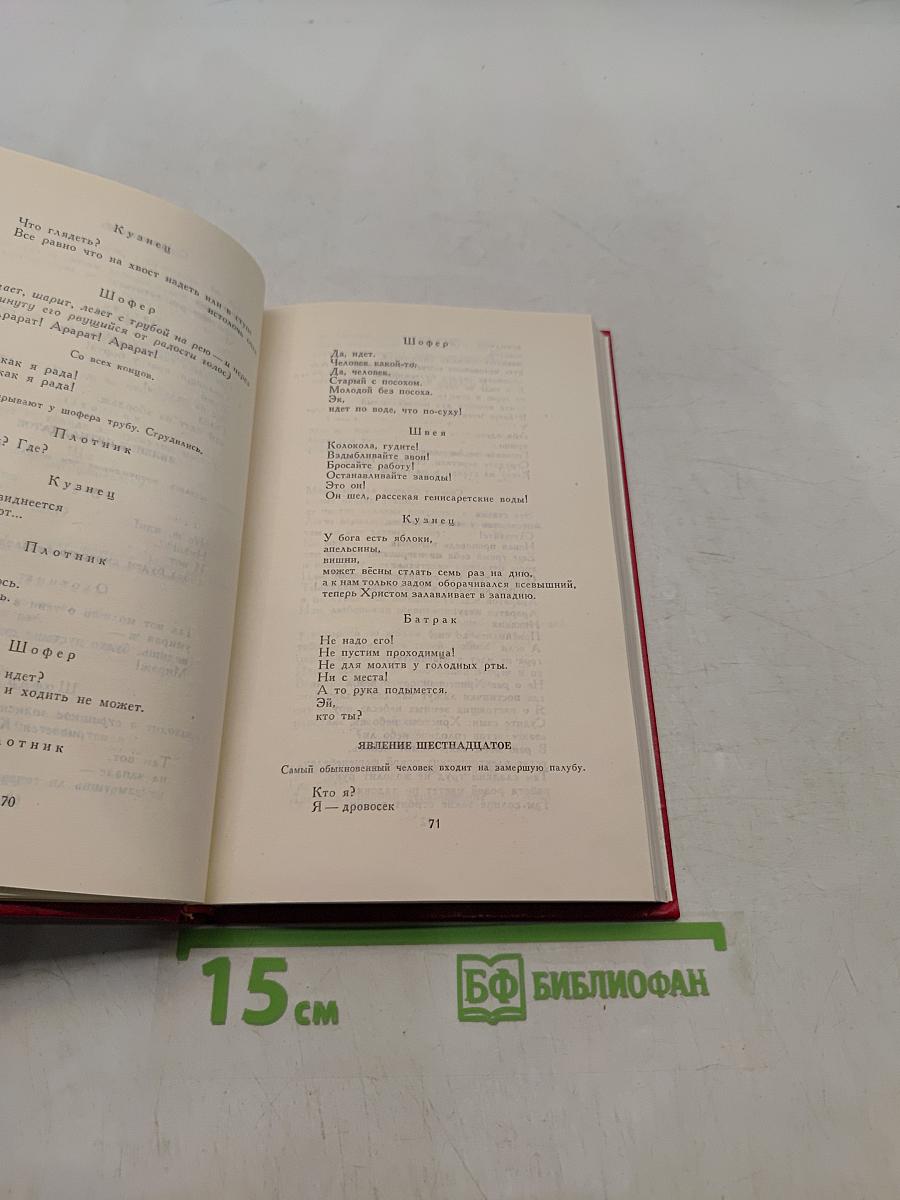 Кузнец
Что глядеть?
Все равно что на хвост надеть или в ступе
истолочь
Шофер
шарит, лезет с трубой на рею — и через
минуту его рвущийся от радости голос)
Арарат! Арарат! Арарат!
Со всех концов.
как я рада!
как я рада!
у шофера трубу. Сгрудились.
Плотник
Где?
Кузнец
виднеется
Плотник
Шофер
идет?
и ходить не может.
70
Шофер
Да, идет.
Человек какой-то.
Да, человек.
Старый с посохом.
Молодой без посоха.
Эк,
идет по воде, что по-суху!
Швея
Колокола, гудите!
Вздыбливайте звон!
Бросайте работу!
Останавливайте заводы!
Это он!
Он шел, рассекая генисаретские воды!
Кузнец
У бога есть яблоки,
апельсины,
вишни,
может вёсны стлать семь раз на дню,
а к нам только задом оборачивался всевышний,
теперь Христом залавливает в западню.
Батрак
Не надо его!
Не пустим проходимца!
Не для молитв у голодных рты.
Ни с места!
А то рука подымется.
Эй,
кто ты?
ЯВЛЕНИЕ ШЕСТНАДЦАТОЕ
Самый обыкновенный человек входит на замершую палубу.
Кто я?
Я — дровосек
71
15 см
БФ БИБЛИОФАН